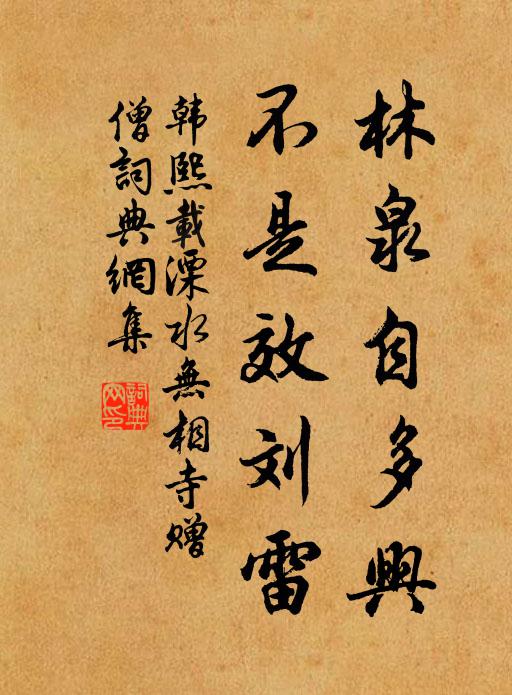 林泉自多興
不是效刘雷
韩熙載溧水無相寺赠
僧詞典網集
詞典
网印